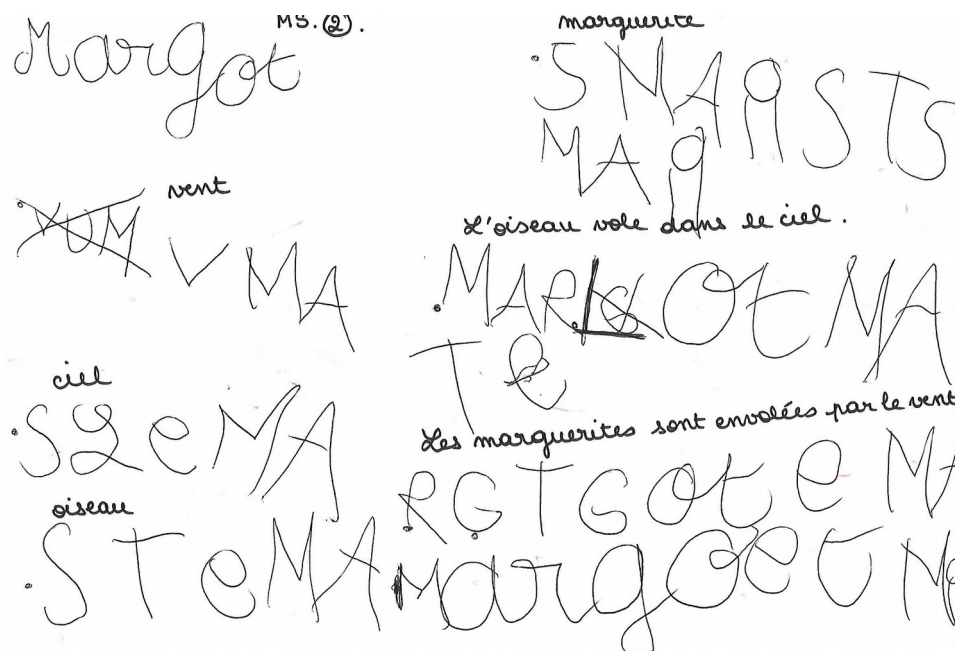 Margot
MS. (2).
vent
YUM V MA
ciel
S2eMA
oiseau
STeMA
marguerite
SMAqqSTS
MAq
L'oiseau vole dans le ciel.
MAR Ot MA
Te
Les marguerites sont envolées par le vent
RGTGoteMA
Margoet